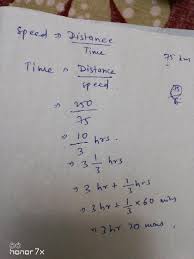 Speed ⇒ Distance
Time
75 kms
Time ⇒ Distance
speed
⇒ 250
75
⇒ 10
3 hrs.
⇒ 3 1/3 hrs
⇒ 3 hr + 1/3 hrs
⇒ 3 hr + 1/3 × 60 mins
⇒ 3 hr 20 mins.
honor 7x